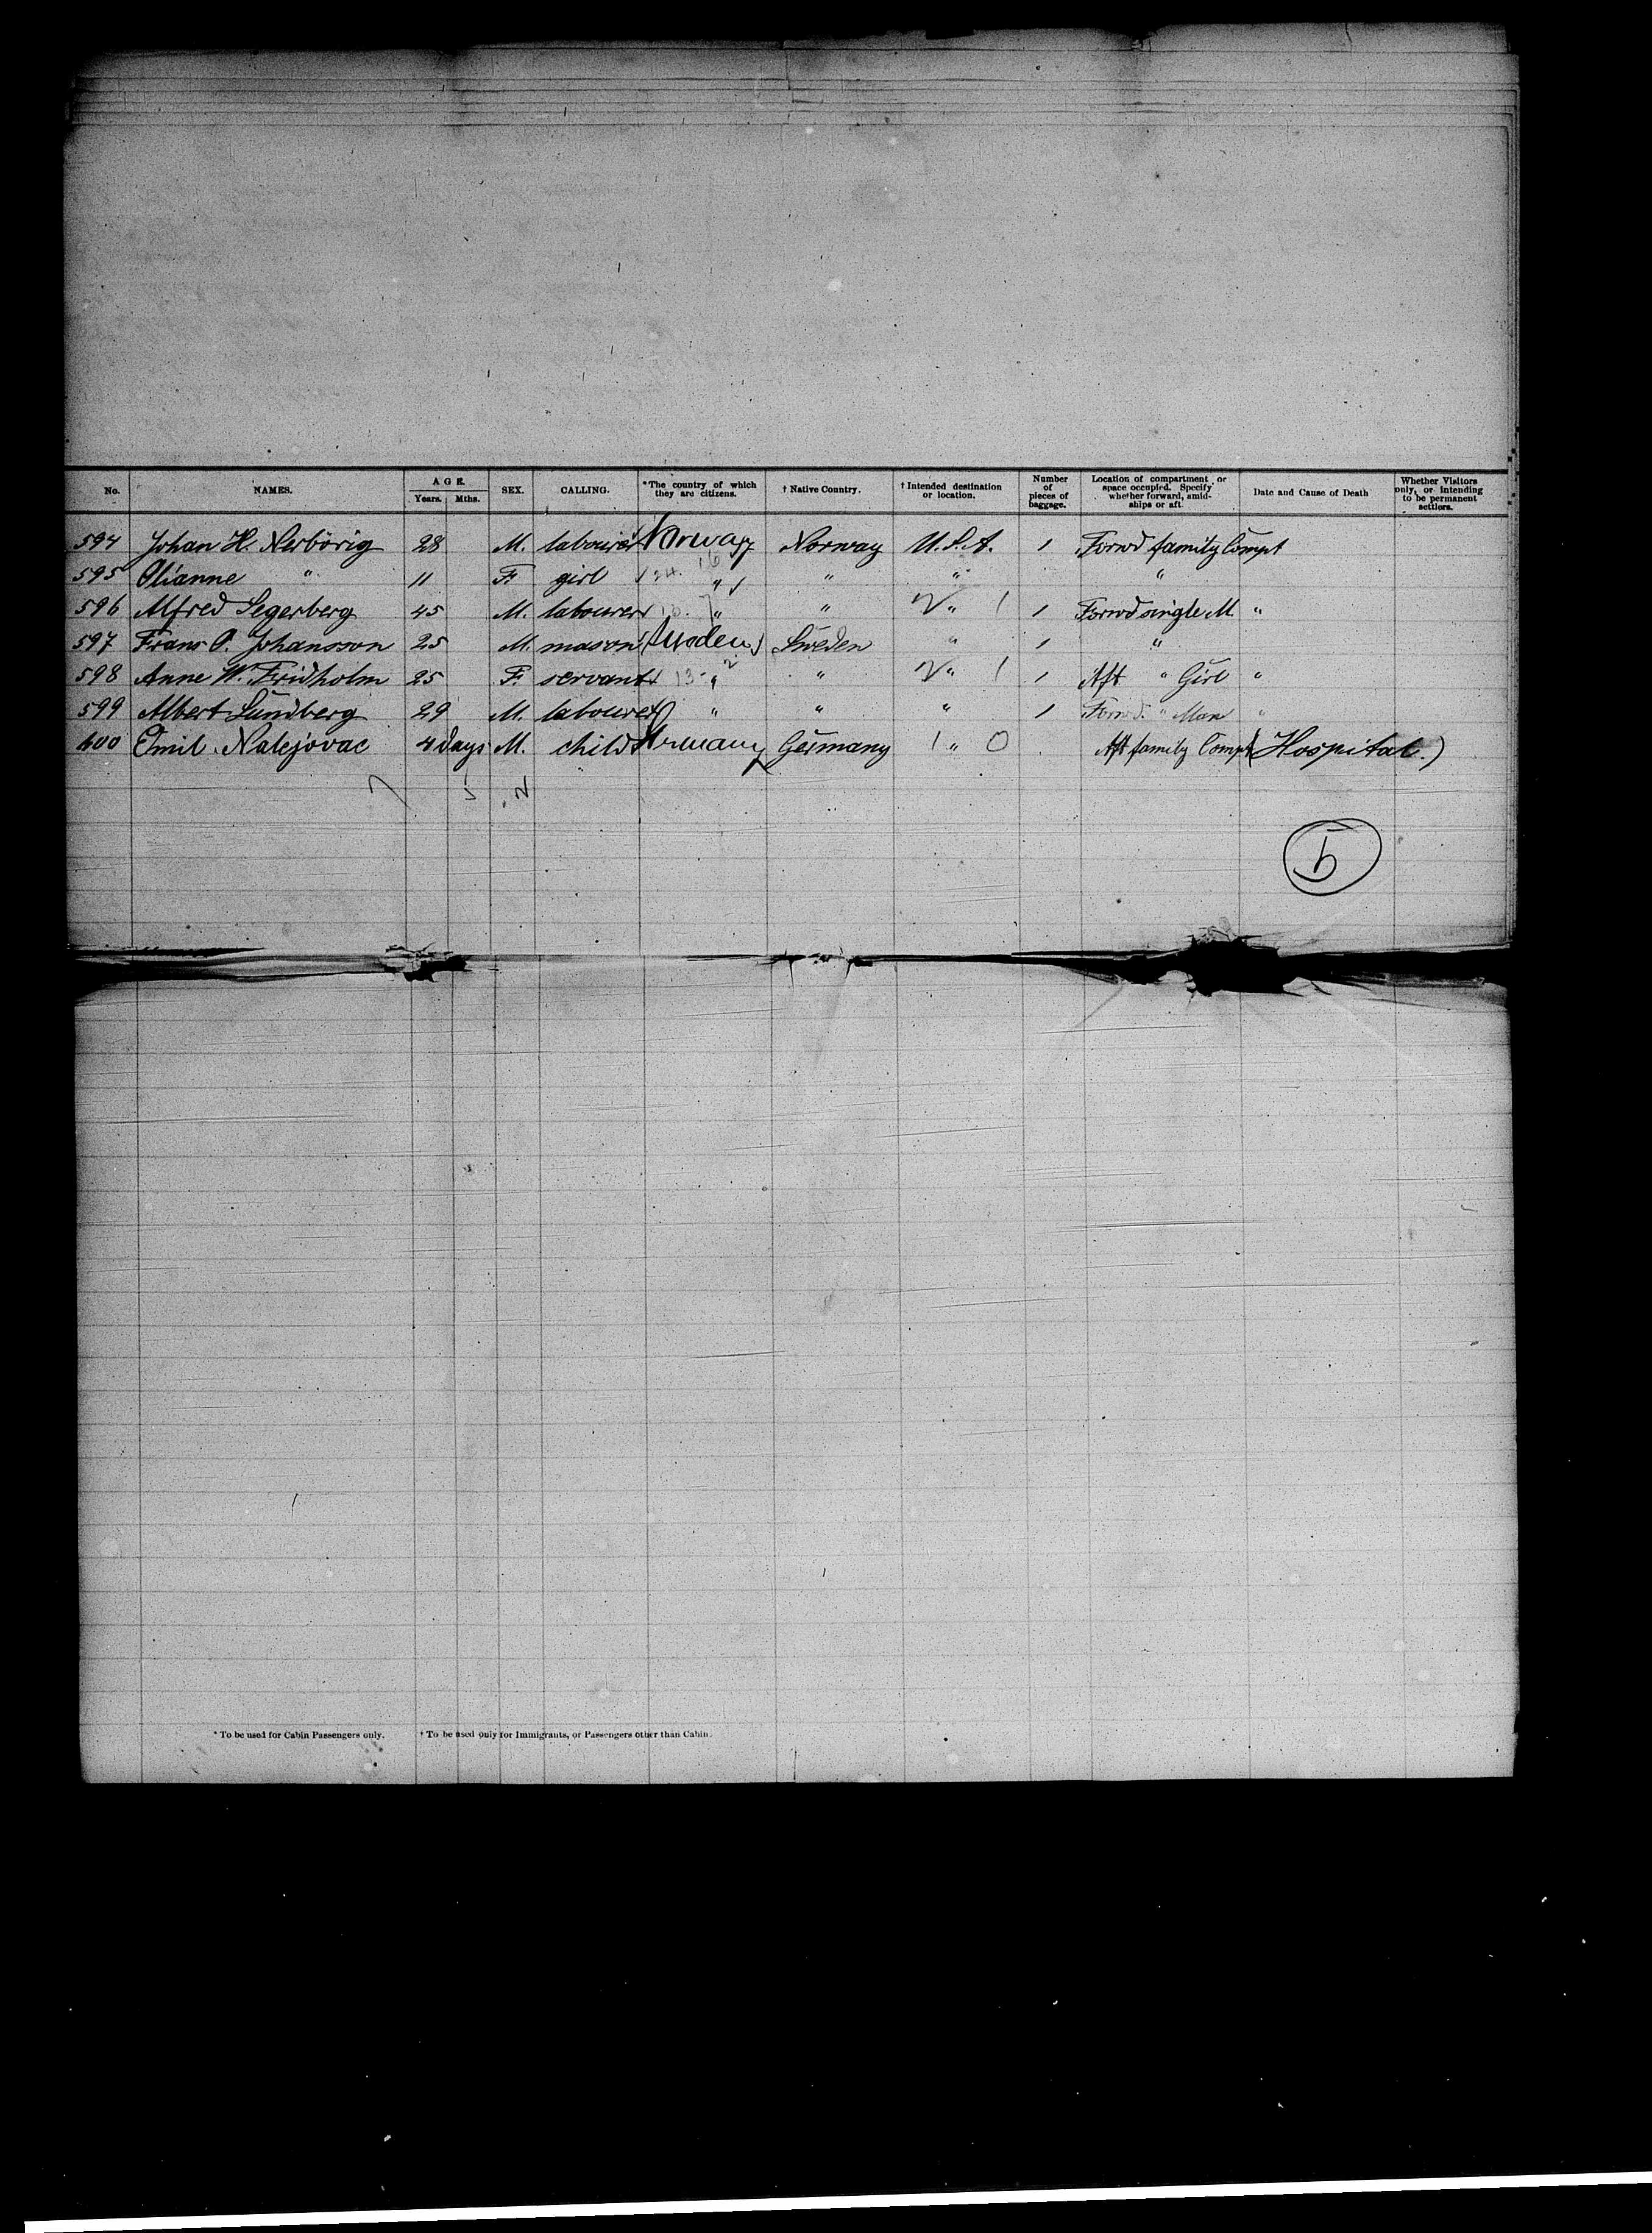 No. NAMES. AGE. Years. Mths. SEX. CALLING. *The country of which they are citizens. † Native Country. † Intended destination or location. Number of pieces of baggage. Location of compartment or space occupied. Specify whether forward, amidships or aft. Date and Cause of Death Whether Visitors only, or intending to be permanent settlers.
594 Johan H. Nerbörig 28 M. labourer Norway Norway U.S.A. 1 Forwd family Compt
595 Olianne " 11 F. girl " " " "
596 Alfred Segerberg 45 M. labourer " " " 1 1 Forwd single M. "
597 Frans O. Johansson 25 M. mason Sweden " 1 "
598 Anne W. Fridholm 25 F. servant " " " 1 1 Aft " Girl "
599 Albert Sundberg 29 M. labourer " " " 1 Forwd. " Man "
600 Emil Nalejovac 4 days M. child Germany Germany 1 " 0 Aft family Compt (Hospital.)
7 5 2
5
* To be used for Cabin Passengers only. † To be used only for Immigrants, or Passengers other than Cabin.